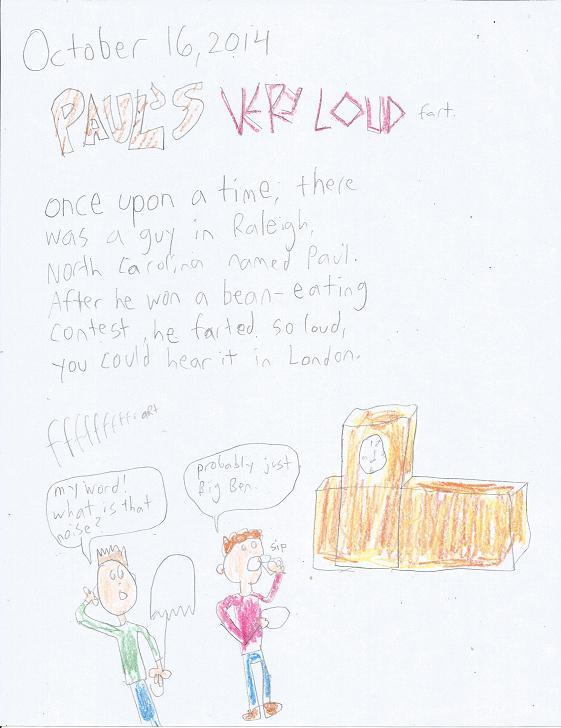 October 16, 2014
PAUL'S VERY LOUD fart.
once upon a time, there
was a guy in Raleigh,
North Carolina named Paul.
After he won a bean-eating
contest, he farted so loud,
you could hear it in London.
fffffffffffART
my word!
what is that
noise?
probably just
Big Ben.
sip